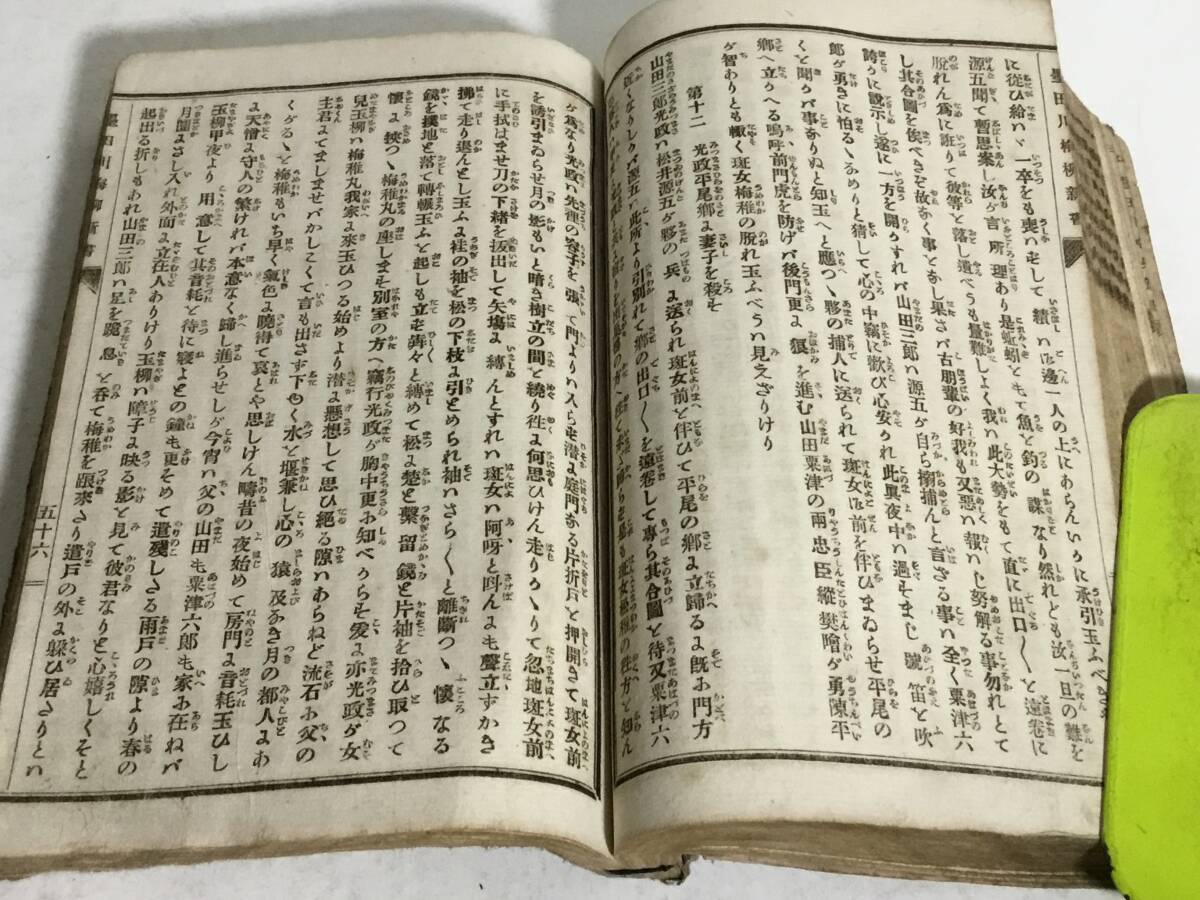 墨田川梅柳新書
に從ひ給ハヾ一卒をも喪ハせして績ハ渡邊一人の上にあらんいかに承引玉ふべ
源五聞て暫思案し汝が言所理あり是蚯蚓ともて魚と釣の謀なり然れども汝一旦の難を
脱れん爲に班りて彼等と落し遣べうも量難しよく我ハ此大勢をもて直に出口〱と遠卷に
し其合圖を俟べきそ故なく事とおし果さバ古朋輩の好我も又惡ハ報ハじ努解る事勿れとて
誇りに說示し遂に一方を開かすれバ山田三郎ハ源五が自ら搦捕んと言ざる事ハ全く粟津六
郎が勇きに怕るヽなめりと猜して心の中竊に歡び心安かれ此興夜中ハ過そまじ號笛と吹
くと聞かバ事ありぬと知玉へと應つヽ夥の捕人に送られて斑女御前を伴ひまゐらせ平尾の
鄕へ立かへる嗚呼前門虎を防げバ後門更に狼を進む山田粟津の兩忠臣縱樊噲が勇陳平
が智ありとも輙く斑女梅稚の脫れ玉ふべうハ見えざりけり
第十二 光政平尾鄕に妻子を殺そ
山田三郎光政ハ松井源五が夥の兵に送られ斑女前と伴ひて平尾の鄕に立歸るに既に門方
近くなりしかバ源五ハ此所より引別れて鄕の出口〱を遠卷して專ら其合圖と待又粟津六
が爲なり光政ハ先裡の容子を張て門よりハ入らせ潜に庭門なる片折戶と押開きて斑女前
を誘引まゐらせ月の影もいと暗き樹立の間と繞り徃に何思ひけん走りかヽりて忽地斑女前
に手拭はませ刀の下緖を拔出して矢塲に縛んとすれバ斑女ハ阿呀と叫んにも聲立ずかき
拂て走り退んとし玉ふに袿の袖を松の下枝に引とめられ袖ハさら〱と離斷つヽ懷なる
鏡を撲地と落て轉輾玉ふと起しも立せ犇々と縛めて松に楚と繫留鏡と片袖を拾ひ取つて
懷に挾つヽ梅稚丸の座しまそ別室の方へ竊行光政が胸中更に知べからせ爰に亦光政が女
兒玉柳ハ梅稚丸我家に來玉ひつる始めより潜に懸想して思ひ絕る隙ハあらねど流石に父の
主君にてましませバかしこくて言も出さず下ゆく水と堰兼し心の猿及なき月の都人にあ
くがるヽと梅稚もいち早く氣色に曉得て哀とや思しけん疇昔の夜始めて房門に音耗玉ひし
に天憎に守人の繁けれバ本意なく歸し進らせしが今宵ハ父の山田も粟津六郎も家に在ねバ
玉柳甲夜より用意して其音耗と待に寢よとの鐘も更そめて遣殘しさる雨戶の隙より春の
月朧にさし入れ外面に立在人ありけり玉柳ハ障子に映る影と見て彼君なりと心嬉しくそと
起出る折しもあれ山田三郎ハ足を踮息と呑て梅稚を跟來さり遣戶の外に躱ひ居さりとハ
墨田川梅柳新書
五十六